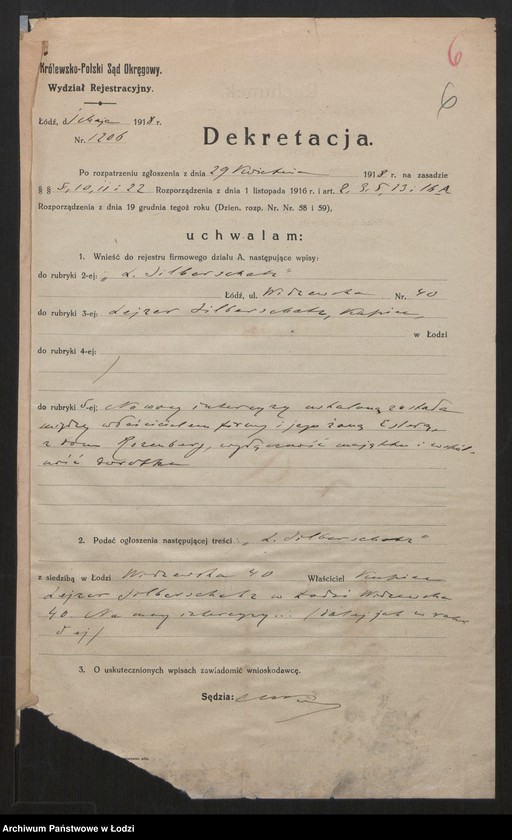 6
6
Królewsko-Polski Sąd Okręgowy.
Wydział Rejestracyjny.
Łódź, d. 1 maja 1918 r.
Nr. 1206
Dekretacja.
Po rozpatrzeniu zgłoszenia z dnia 29 Kwietnia 1918 r. na zasadzie
§ § 5, 10, 11 i 22 Rozporządzenia z dnia 1 listopada 1916 r. i art. 2, 3, 5, 13 i 16 A
Rozporządzenia z dnia 19 grudnia tegoż roku (Dzien. rozp. Nr. Nr. 58 i 59),
uchwalam:
1. Wnieść do rejestru firmowego działu A. następujące wpisy:
do rubryki 2-ej: „L. Silberschatz"
Łódź, ul. Widzewska Nr. 40
do rubryki 3-ej: Lejzer Silberschatz, kupiec,
w Łodzi
do rubryki 4-ej:
do rubryki 5-ej: Na mocy intercyzy ustaloną została
między właścicielem firmy i jego żoną Esterą,
z domu Rozenberg, wyłączność majątku i wspól-
ność dorobku
2. Podać ogłoszenia następującej treści: „L. Silberschatz"
z siedzibą w Łodzi Widzewska 40 Właściciel Kupiec
Lejzer Silberschatz w Łodzi Widzewska
40. Na mocy intercyzy ... (dalej jak w rubr.
5 ej)
3. O uskutecznionych wpisach zawiadomić wnioskodawcę.
Sędzia:
Archiwum Państwowe w Łodzi